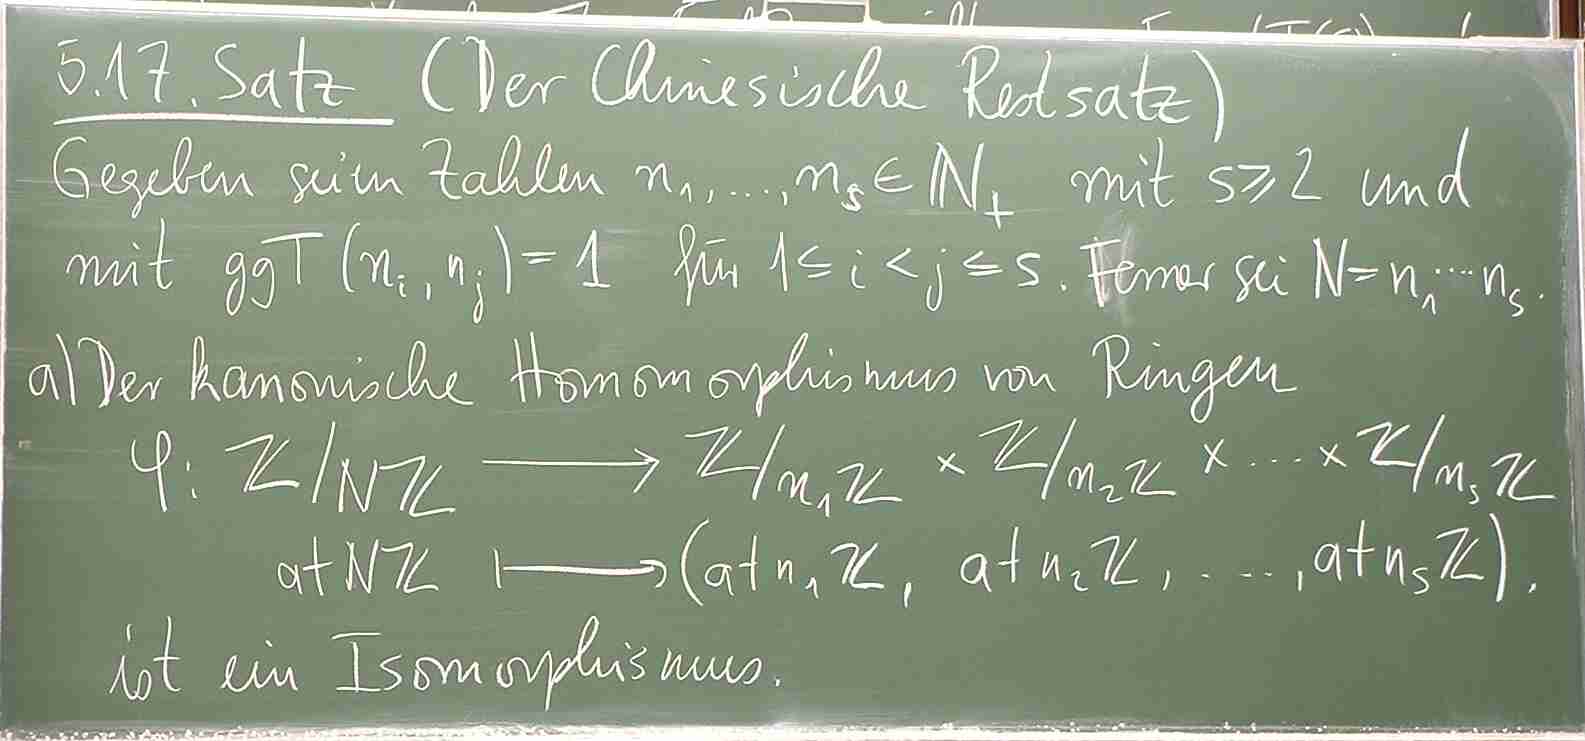 5.17. Satz (Der Chinesische Restsatz)
Gegeben seien Zahlen n₁,...,nₛ ∈ ℕ₊ mit s ⩾ 2 und
mit ggT (nᵢ, nⱼ) = 1 für 1 ≤ i < j ≤ s. Ferner sei N = n₁⋯nₛ.
a) Der kanonische Homomorphismus von Ringen
φ: ℤ/Nℤ ⟶ ℤ/n₁ℤ × ℤ/n₂ℤ × ... × ℤ/nₛℤ
a+Nℤ ⟼ (a+n₁ℤ, a+n₂ℤ, ...., a+nₛℤ).
ist ein Isomorphismus.